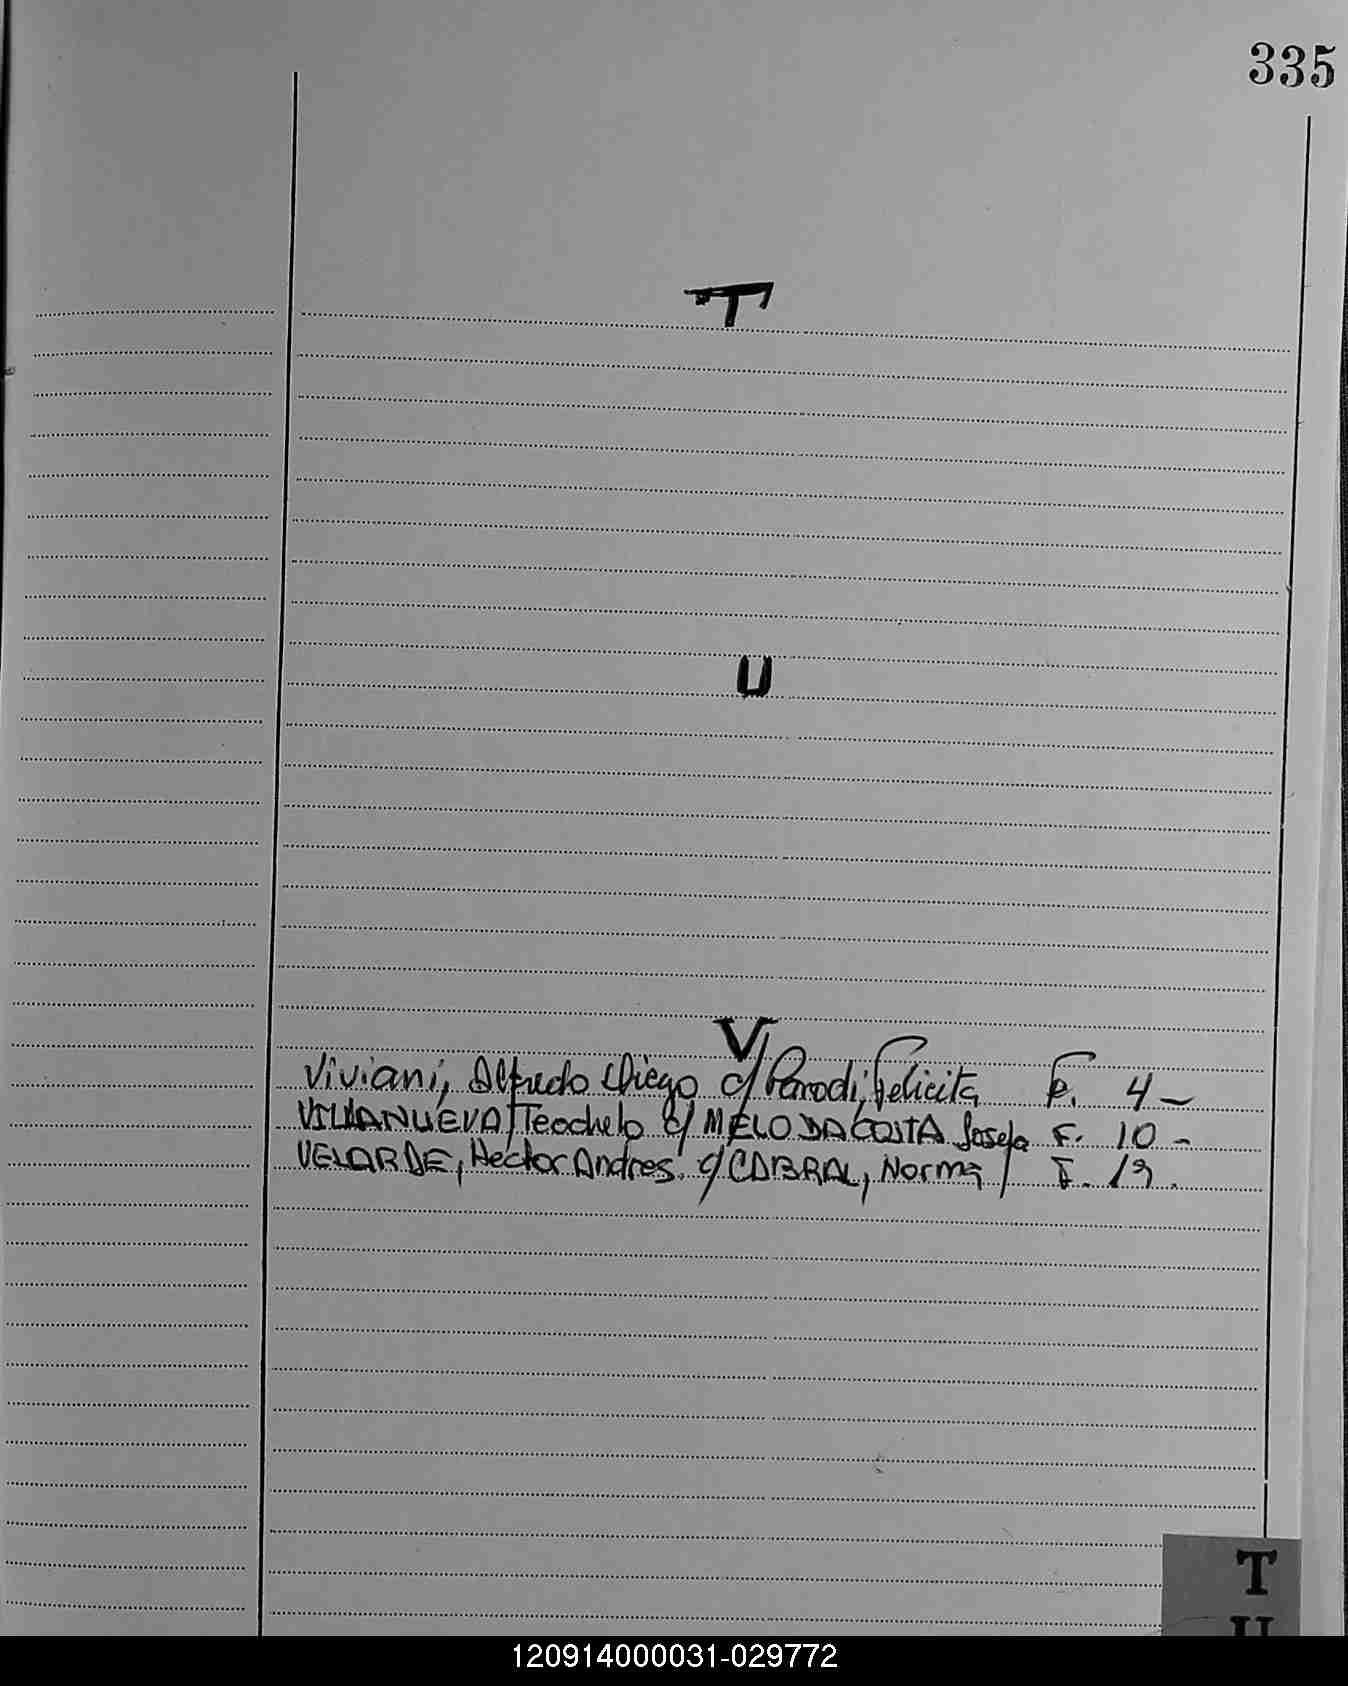 335
T
U
V
Viviani, Alfredo Diego c/ Parodi, Felicita F. 4 -
VILLANUEVA, Teochelo c/ MELO DA COSTA Josefa F. 10 -
VELARDE, Hector Andres c/ CABRAL, Norma F. 19.
T
U
120914000031-029772